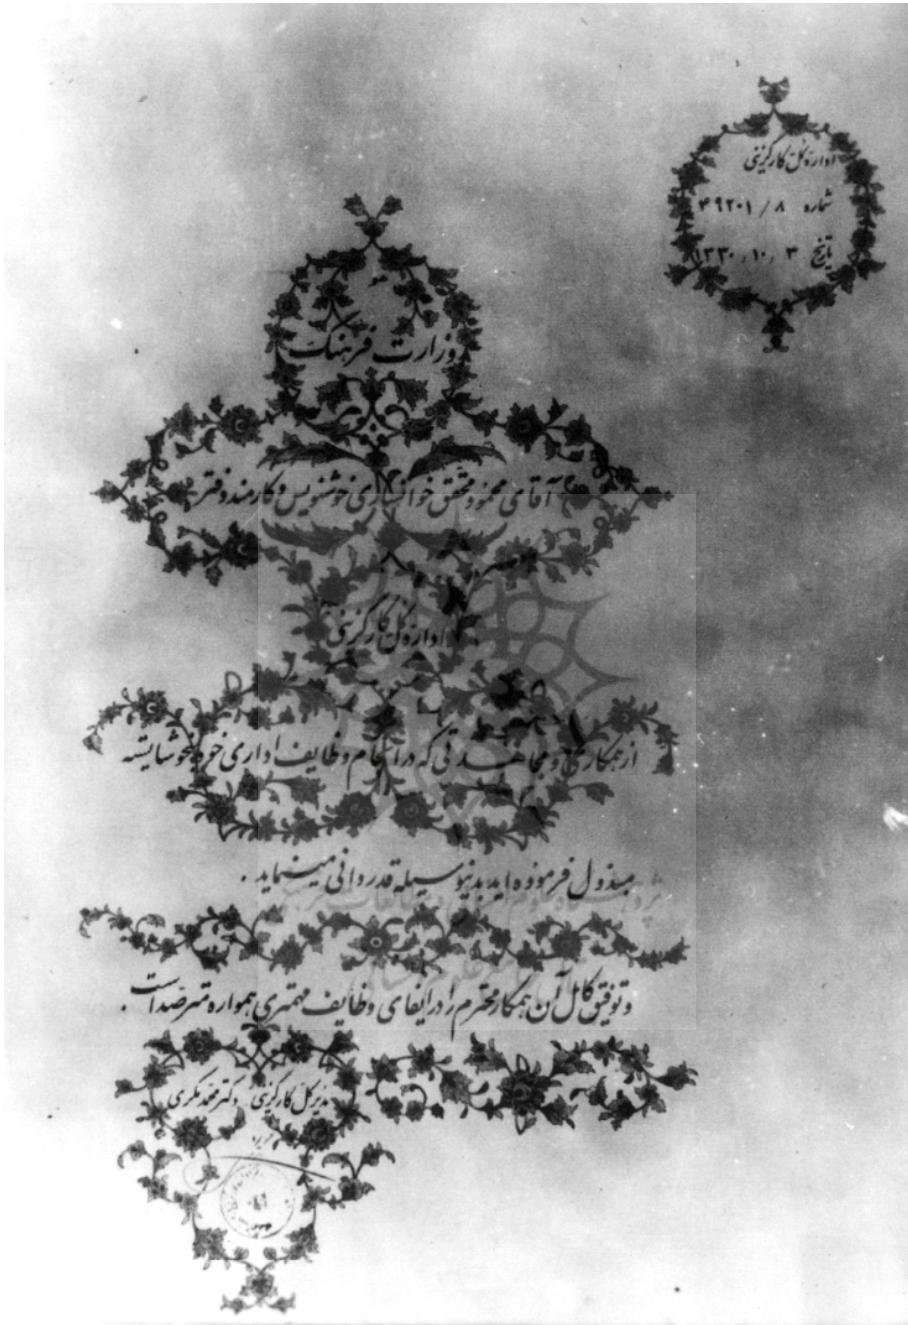 ادارهٔ کل کارگزینی
شماره ۸ / ۴۹۲۰۱
تاریخ ۳ ر ۱۰ ر ۱۳۳۰
وزارت فرهنگ
آقای محمود محقق خوانساری خوشنویس و کارمند دفتر
ادارهٔ کل کارگزینی
از همکاری و مجاهدتی که در انجام وظایف اداری خود بنحو شایسته
مبذول فرموده اید بدینوسیله قدردانی مینماید .
و توفیق کامل آن همکار محترم را در ایفای وظایف مهمتری همواره مترصد است .
مدیر کل کارگزینی دکتر محمد مکری